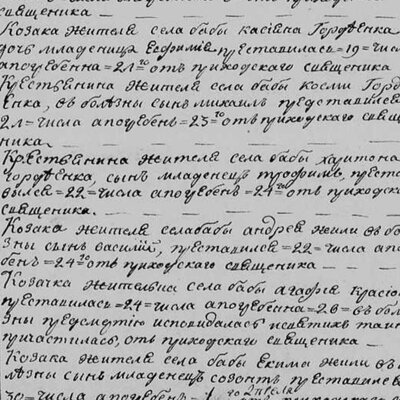 священика —
Козака жителя села бабы касіана Гордѣенка
дочь младеница Евфимія преставилась =19= числа
апогребенна =21го отъ приходскаго священика
Крестянина жителя села бабы космы Горд
Енка, въ болѣзны сынъ михаилъ представился
21= числа апогребенъ =23го отъ приходскаго свящ
ника. —
Крестьянина жителя села бабы харитона
гордѣенка, сынъ младенецъ трофимъ, преста
вылся =22= числа апогребенъ =24го отъ приходска
священика. —
Козака жителя села бабы андрея
зны сынъ василій, преставился =22= числа апо
бенъ =24го отъ приходскаго священика —
Козачка жителька села бабы агафія
преставилась =24= числа апогребенна =26= въ бол
зны предсмертію исповидалась исвятихъ таин
причастилась, отъ приходскаго священика —
Козака жителя села бабы Екима
лѣзны сынъ младенецъ созонтъ преставился
30= числа апогребенъ = 1го апреля